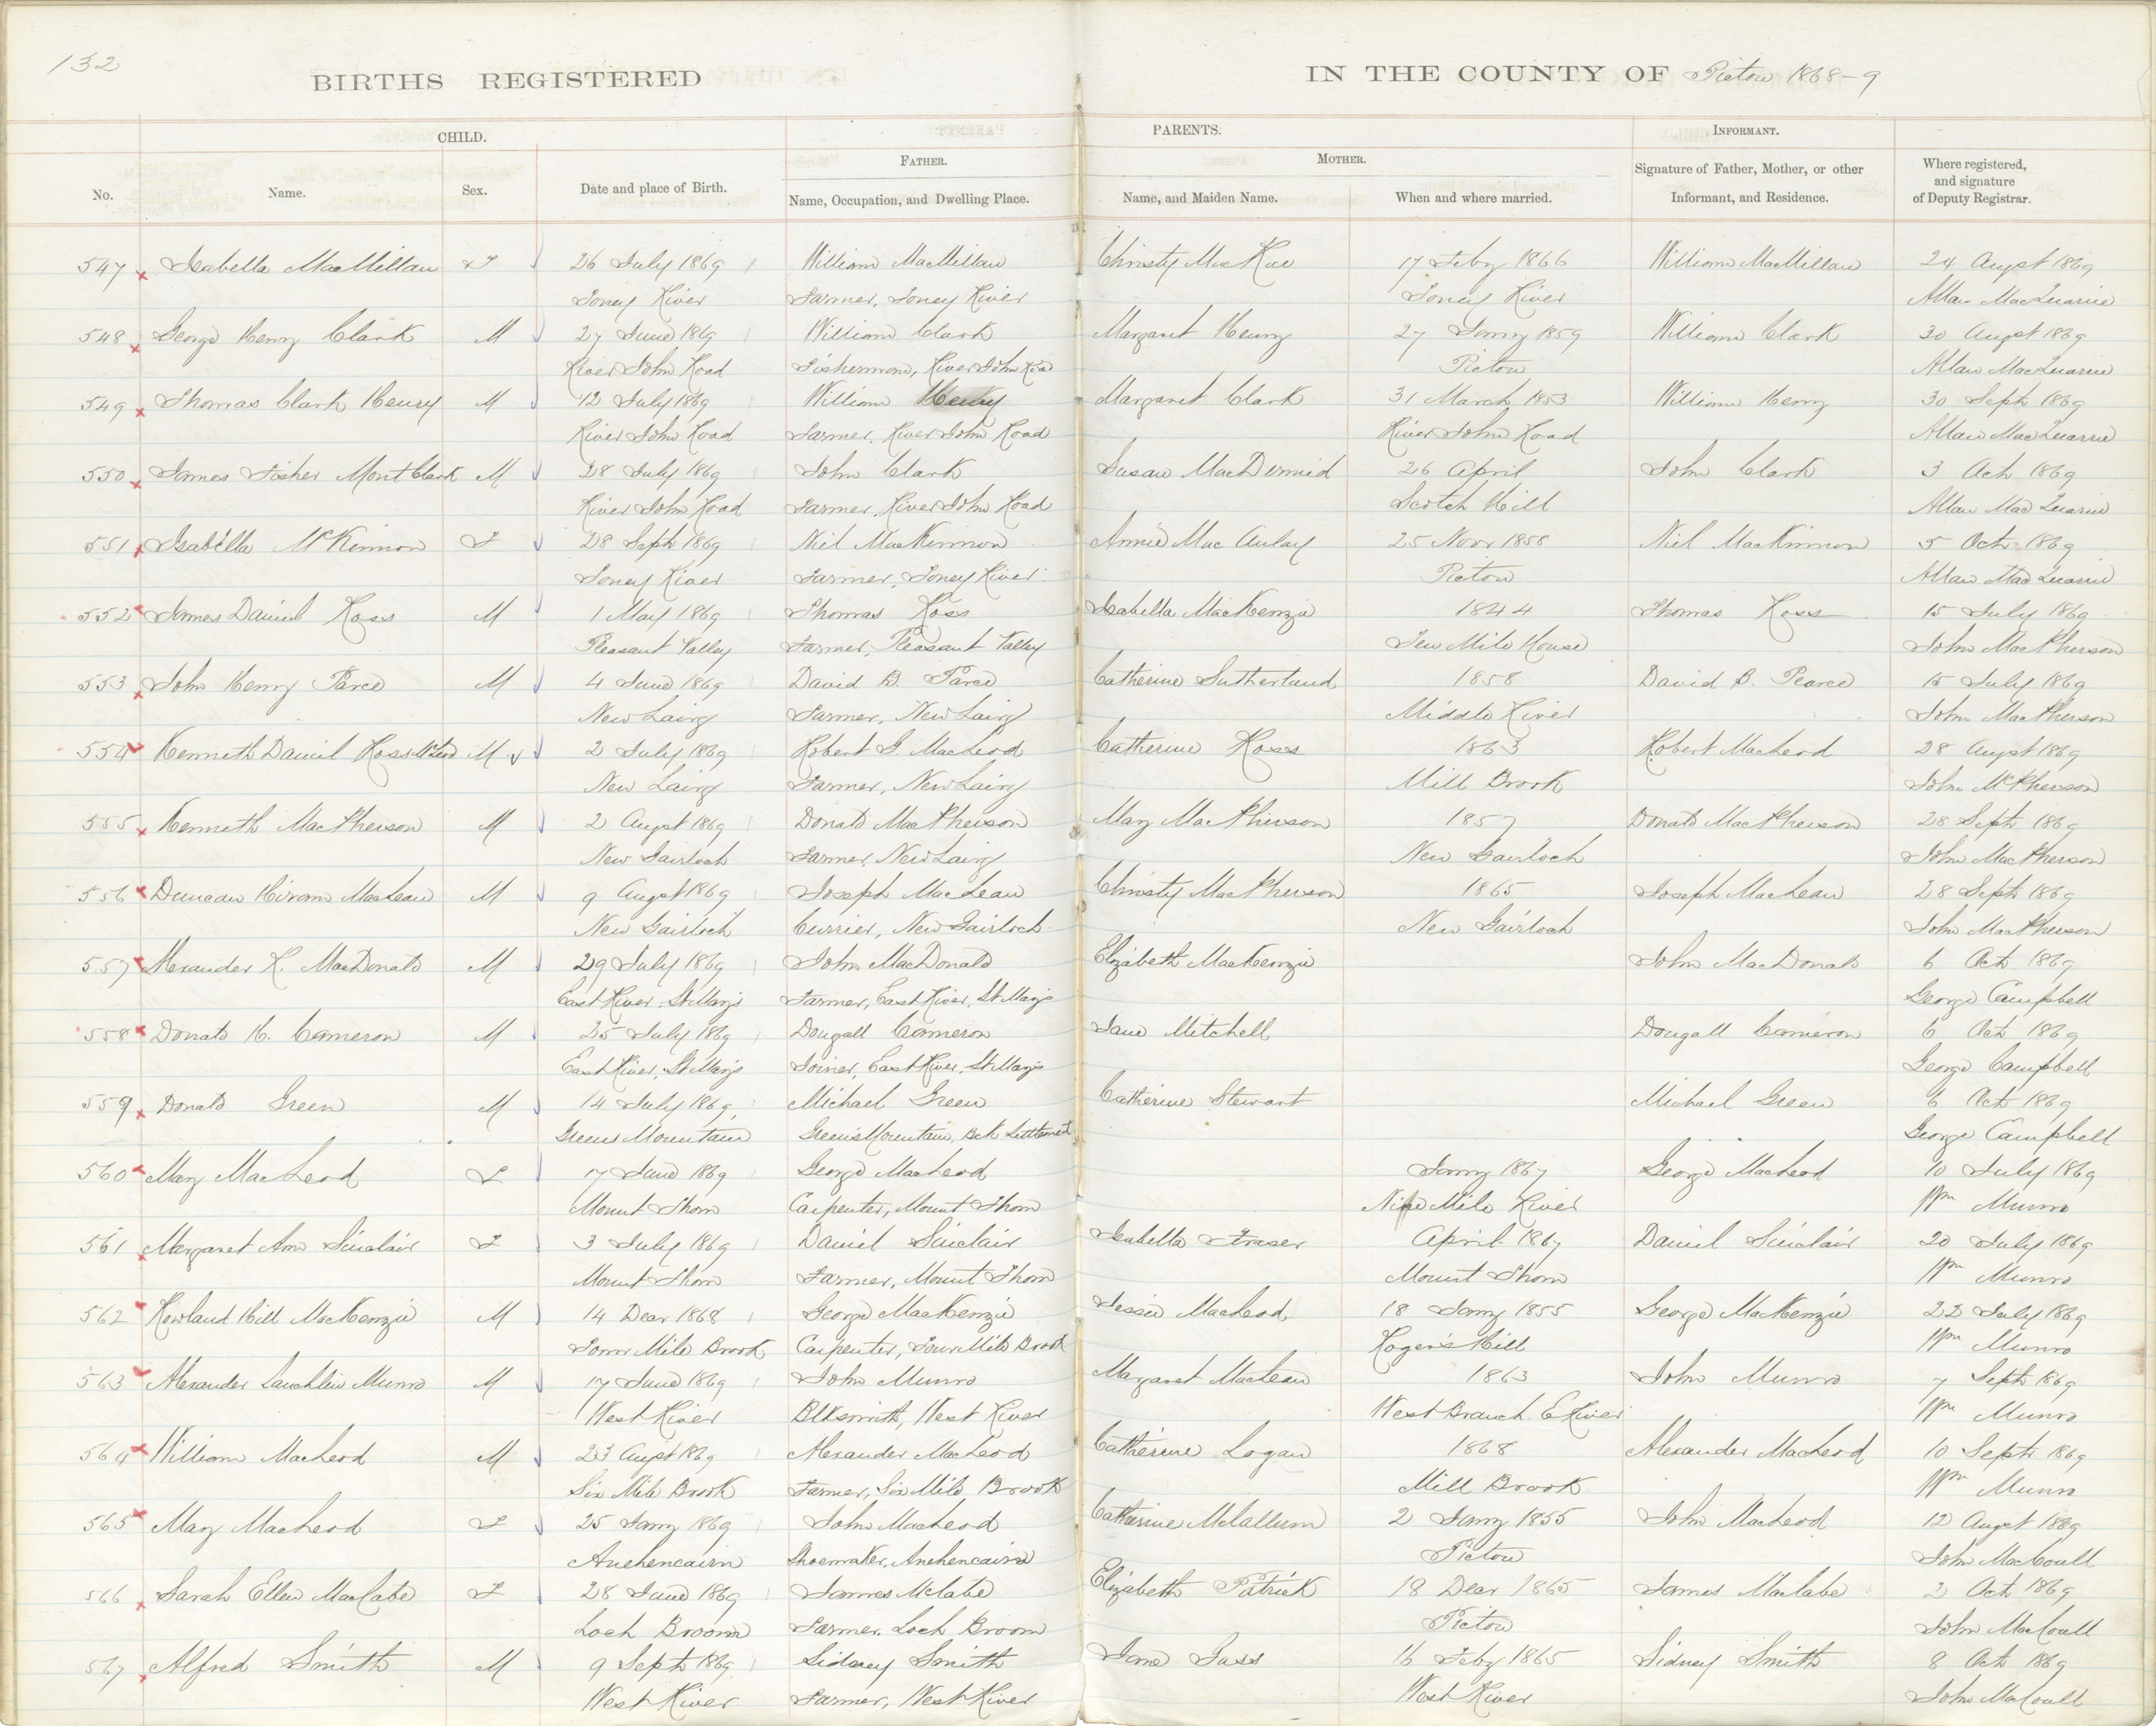 132
BIRTHS REGISTERED
IN THE COUNTY OF Pictou 1868-9
CHILD.
PARENTS.
INFORMANT.
FATHER.
MOTHER.
No.
Name.
Sex.
Date and place of Birth.
Name, Occupation, and Dwelling Place.
Name, and Maiden Name.
When and where married.
Signature of Father, Mother, or other
Informant, and Residence.
Where registered,
and signature
of Deputy Registrar.
547 Isabella MacMillan F 26 July 1869 William MacMillan Christy MacKae 17 Feby 1866 William MacMillan 24 Augst 1869
Toney River Farmer, Toney River Toney River Allan MacQuarrie
548 George Henry Clark M 27 June 1869 William Clark Margaret Henry 27 Jany 1859 William Clark 30 Augst 1869
River John Road Fisherman, River John Road Pictou Allan MacQuarrie
549 Thomas Clark Henry M 12 July 1869 William Henry Margaret Clark 31 March 1853 William Henry 30 Sept 1869
River John Road Farmer, River John Road River John Road Allan MacQuarrie
550 James Fisher Mont Clark M 28 July 1869 John Clark Susan MacDermid 26 April John Clark 3 Oct 1869
River John Road Farmer, River John Road Scotch Hill Allan MacQuarrie
551 Isabella McKinnon F 28 Sept 1869 Niel MacKinnon Annie MacAulay 25 Novr 1858 Niel MacKinnon 5 Oct 1869
Toney River Farmer, Toney River Pictou Allan MacQuarrie
552 James Daniel Ross M 1 May 1869 Thomas Ross Isabella MacKenzie 1844 Thomas Ross 15 July 1869
Pleasant Valley Farmer, Pleasant Valley Ten Mile House John MacPherson
553 John Henry Parce M 4 June 1869 David B. Parce Catherine Sutherland 1858 David B. Pearce 15 July 1869
New Lairg Farmer, New Lairg Middle River John MacPherson
554 Kenneth Daniel Ross McLeod M 2 July 1869 Robert G. MacLeod Catherine Ross 1863 Robert MacLeod 28 Augst 1869
New Lairg Farmer, New Lairg Mill Brook John McPherson
555 Kenneth MacPherson M 2 Augst 1869 Donald MacPherson Mary MacPherson 1857 Donald MacPherson 28 Sept 1869
New Gairloch Farmer, New Lairg New Gairloch John MacPherson
556 Duncan Hiram MacLean M 9 Augst 1869 Joseph MacLean Christy MacPherson 1865 Joseph MacLean 28 Sept 1869
New Gairloch Currier, New Gairloch New Gairloch John MacPherson
557 Alexander K. MacDonald M 29 July 1869 John MacDonald Elizabeth MacKenzie John MacDonald 6 Oct 1869
East River, St Mary's Farmer, East River, St Mary's George Campbell
558 Donald H. Cameron M 25 July 1869 Dougall Cameron Jane Mitchell Dougall Cameron 6 Oct 1869
East River, St Mary's Joiner, East River, St Mary's George Campbell
559 Donald Green M 14 July 1869 Michael Green Catherine Stewart Michael Green 6 Oct 1869
Greens Mountain Green's Mountain, Bck Settlement George Campbell
560 Mary MacLeod F 17 June 1869 George MacLeod Jany 1867 George MacLeod 10 July 1869
Mount Thom Carpenter, Mount Thom Nine Mile River Wm Munro
561 Margaret Ann Sinclair F 3 July 1869 Daniel Sinclair Isabella Fraser April 1867 Daniel Sinclair 20 July 1869
Mount Thom Farmer, Mount Thom Mount Thom Wm Munro
562 Rowland Hill MacKenzie M 14 Decr 1868 George MacKenzie Jessie MacLeod 18 Jany 1855 George MacKenzie 22 July 1869
Four Mile Brook Carpenter, Four Mile Brook Roger's Hill Wm Munro
563 Alexander Lauchlin Munro M 17 June 1869 John Munro Margaret MacLean 1863 John Munro 7 Sept 1869
West River Blksmith, West River West Branch E River Wm Munro
564 William MacLeod M 23 Augst 1869 Alexander MacLeod Catherine Logan 1868 Alexander MacLeod 10 Sept 1869
Six Mile Brook Farmer, Six Mile Brook Mill Brook Wm Munro
565 Mary MacLeod F 25 Jany 1869 John MacLeod Catherine McCallum 2 Jany 1855 John MacLeod 12 Augst 1869
Auchencairn Shoemaker, Auchencairn Pictou John MacCoull
566 Sarah Ellen MacCabe F 28 June 1869 James McCabe Elizabeth Patrick 18 Decr 1865 James MacCabe 2 Oct 1869
Loch Broom Farmer, Loch Broom Pictou John MacCoull
567 Alfred Smith M 9 Sept 1869 Sidney Smith Jane Gass 16 Feby 1865 Sidney Smith 8 Oct 1869
West River Farmer, West River West River John MacCoull